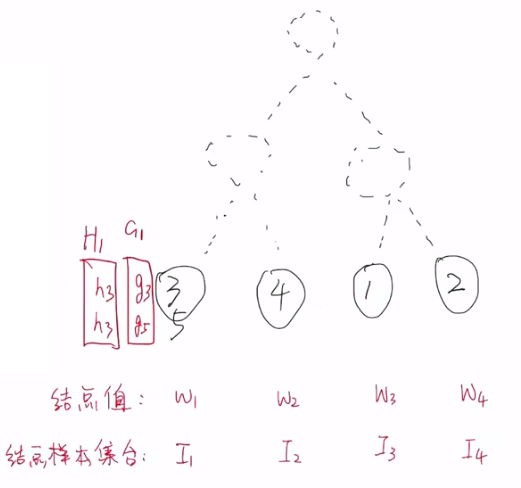 H₁ G₁
h₃ g₃ 3 4 1 2
h₃ g₅ 5
结点值: W₁ W₂ W₃ W₄
结点样本集合: I₁ I₂ I₃ I₄